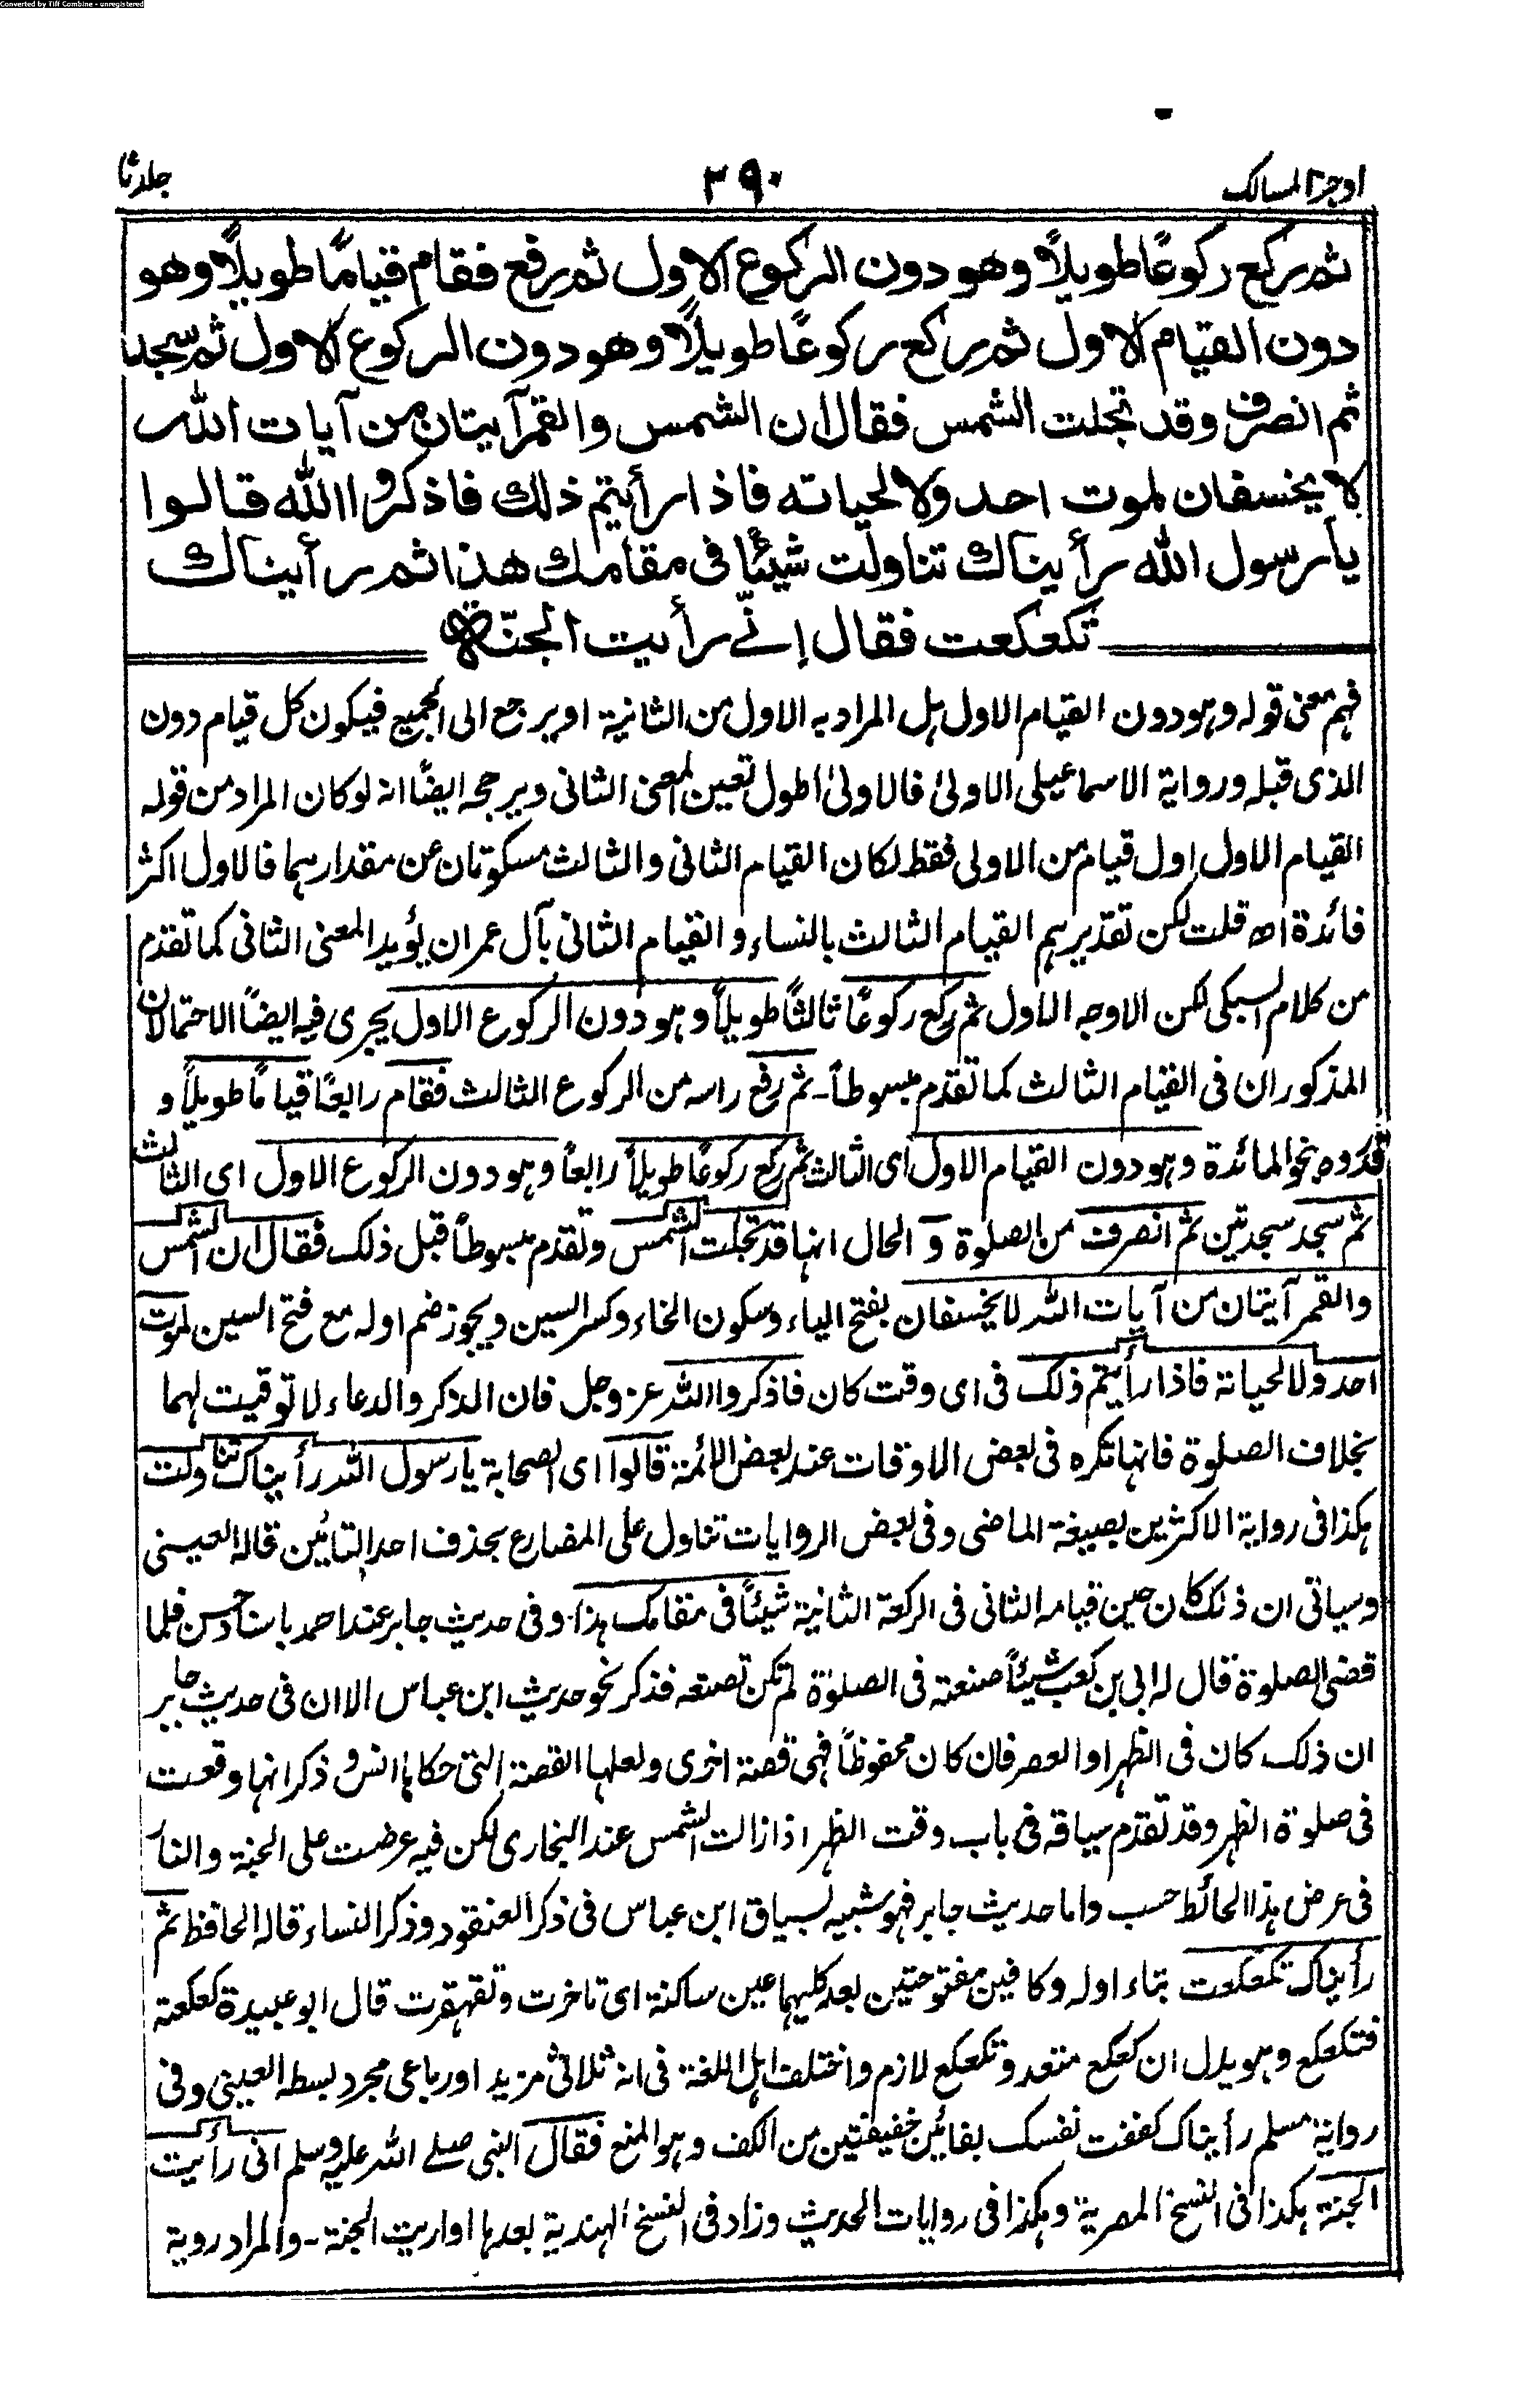 Converted by Tiff Combine - unregistered
اوجز المسالك
٢٩٠
جلد ثا
ثم ركع ركوعًا طويلًا وهو دون الركوع الاول ثم رفع فقام قيامًا طويلًا وهو
دون القيام الاول ثم ركع ركوعًا طويلًا وهو دون الركوع الاول ثم سجد
ثم انصرف وقد تجلت الشمس فقال ان الشمس والقمر آيتان من آيات الله
لا يخسفان لموت احد ولا لحياته فاذا رأيتم ذلك فاذكروا الله قالوا
يا رسول الله رأيناك تناولت شيئًا فى مقامك هذا ثم رأيناك
تكعكعت فقال إنّے رأيت الجنّة
فهم معنى قوله وهو دون القيام الاول هل المراد به الاول من الثانية او يرجع الى الجميع فيكون كل قيام دون
الذى قبله ورواية الاسماعيلى الاولىٰ فالاولىٰ اطول تعين المعنى الثانى ويرجحه ايضًا انه لو كان المراد من قوله
القيام الاول اول قيام من الاولى فقط لكان القيام الثانى والثالث مسكوتان عن مقدارهما فالاول اكثر
فائدة اھ قلت لكن تقديرهم القيام الثالث بالنساء والقيام الثانى بآل عمران يؤيد المعنى الثانى كما تقدم
من كلام السبكى لكن الاوجه الاول ثم ركع ركوعًا ثالثًا طويلاً وهو دون الركوع الاول يجرى فيه ايضًا الاحتمالان
المذكوران فى القيام الثالث كما تقدم مبسوطاً- ثم رفع راسه من الركوع الثالث فقام رابعًا قيامًا طويلاً و
قدروه بنحو المائدة وهو دون القيام الاول اى الثالث ثم ركع ركوعًا طويلاً رابعاً وهو دون الركوع الاول اى الثالث
ثم سجد سجدتين ثم انصرف من الصلوة و الحال انها قد تجلت الشمس وتقدم مبسوطاً قبل ذلك فقال ان الشمس
والقمر آيتان من آيات الله لا يخسفان بفتح الياء وسكون الخاء وكسر السين ويجوز ضم اوله مع فتح السين لموت
احد ولا لحياته فاذا رأيتم ذلك فى اى وقت كان فاذكروا الله عز وجل فان الذكر والدعاء لا توقيت لهما
بخلاف الصلوة فانها تكره فى بعض الاوقات عند بعض الائمة قالوا اى الصحابة يا رسول الله رأيناك تناولت
هكذا فى رواية الاكثرين بصيغة الماضى وفى بعض الروايات تناول على المضارع بحذف احد التائين قاله العينى
وسياتى ان ذلك كان حين قيامه الثانى فى الركعة الثانية شيئًا فى مقامك هذا- وفى حديث جابر عند احمد باسناد حسن فلما
قضى الصلوة قال له ابى بن كعب شيئاً صنعته فى الصلوة لم تكن تصنعه فذكر نحو حديث ابن عباس الا ان فى حديث جابر
ان ذلك كان فى الظهر او العصر فان كان محفوظاً فهى قصة اخرى ولعلها القصة التى حكاها انس وذكر انها وقعت
فى صلوة الظهر وقد تقدم سياقه فى باب وقت الظهر اذا زالت الشمس عند البخارى لكن فيه عرضت على الجنة والنار
فى عرض هذا الحائط حسب واما حديث جابر فهو شبيه لسياق ابن عباس فى ذكر العنقود وذكر النساء قاله الحافظ ثم
رأيناك تكعكعت بتاء اوله وكافين مفتوحتين بعد كليهما عين ساكنة اى تاخرت وتقهقرت قال ابو عبيدة كعكعته
فتكعكع وهو يدل ان كعكع متعد وتكعكع لازم واختلف اهل اللغة فى انه ثلاثى مزيد او رباعى مجرد بسطه العينى وفى
رواية مسلم رأيناك كففت نفسك بفائين خفيفتين من الكف وهو المنع فقال النبى صلے الله عليه وسلم انى رأيت
الجنة هكذا فى النسخ المصرية وهكذا فى روايات الحديث وزاد فى النسخ الهندية بعدها او اريت الجنة- والمراد روية